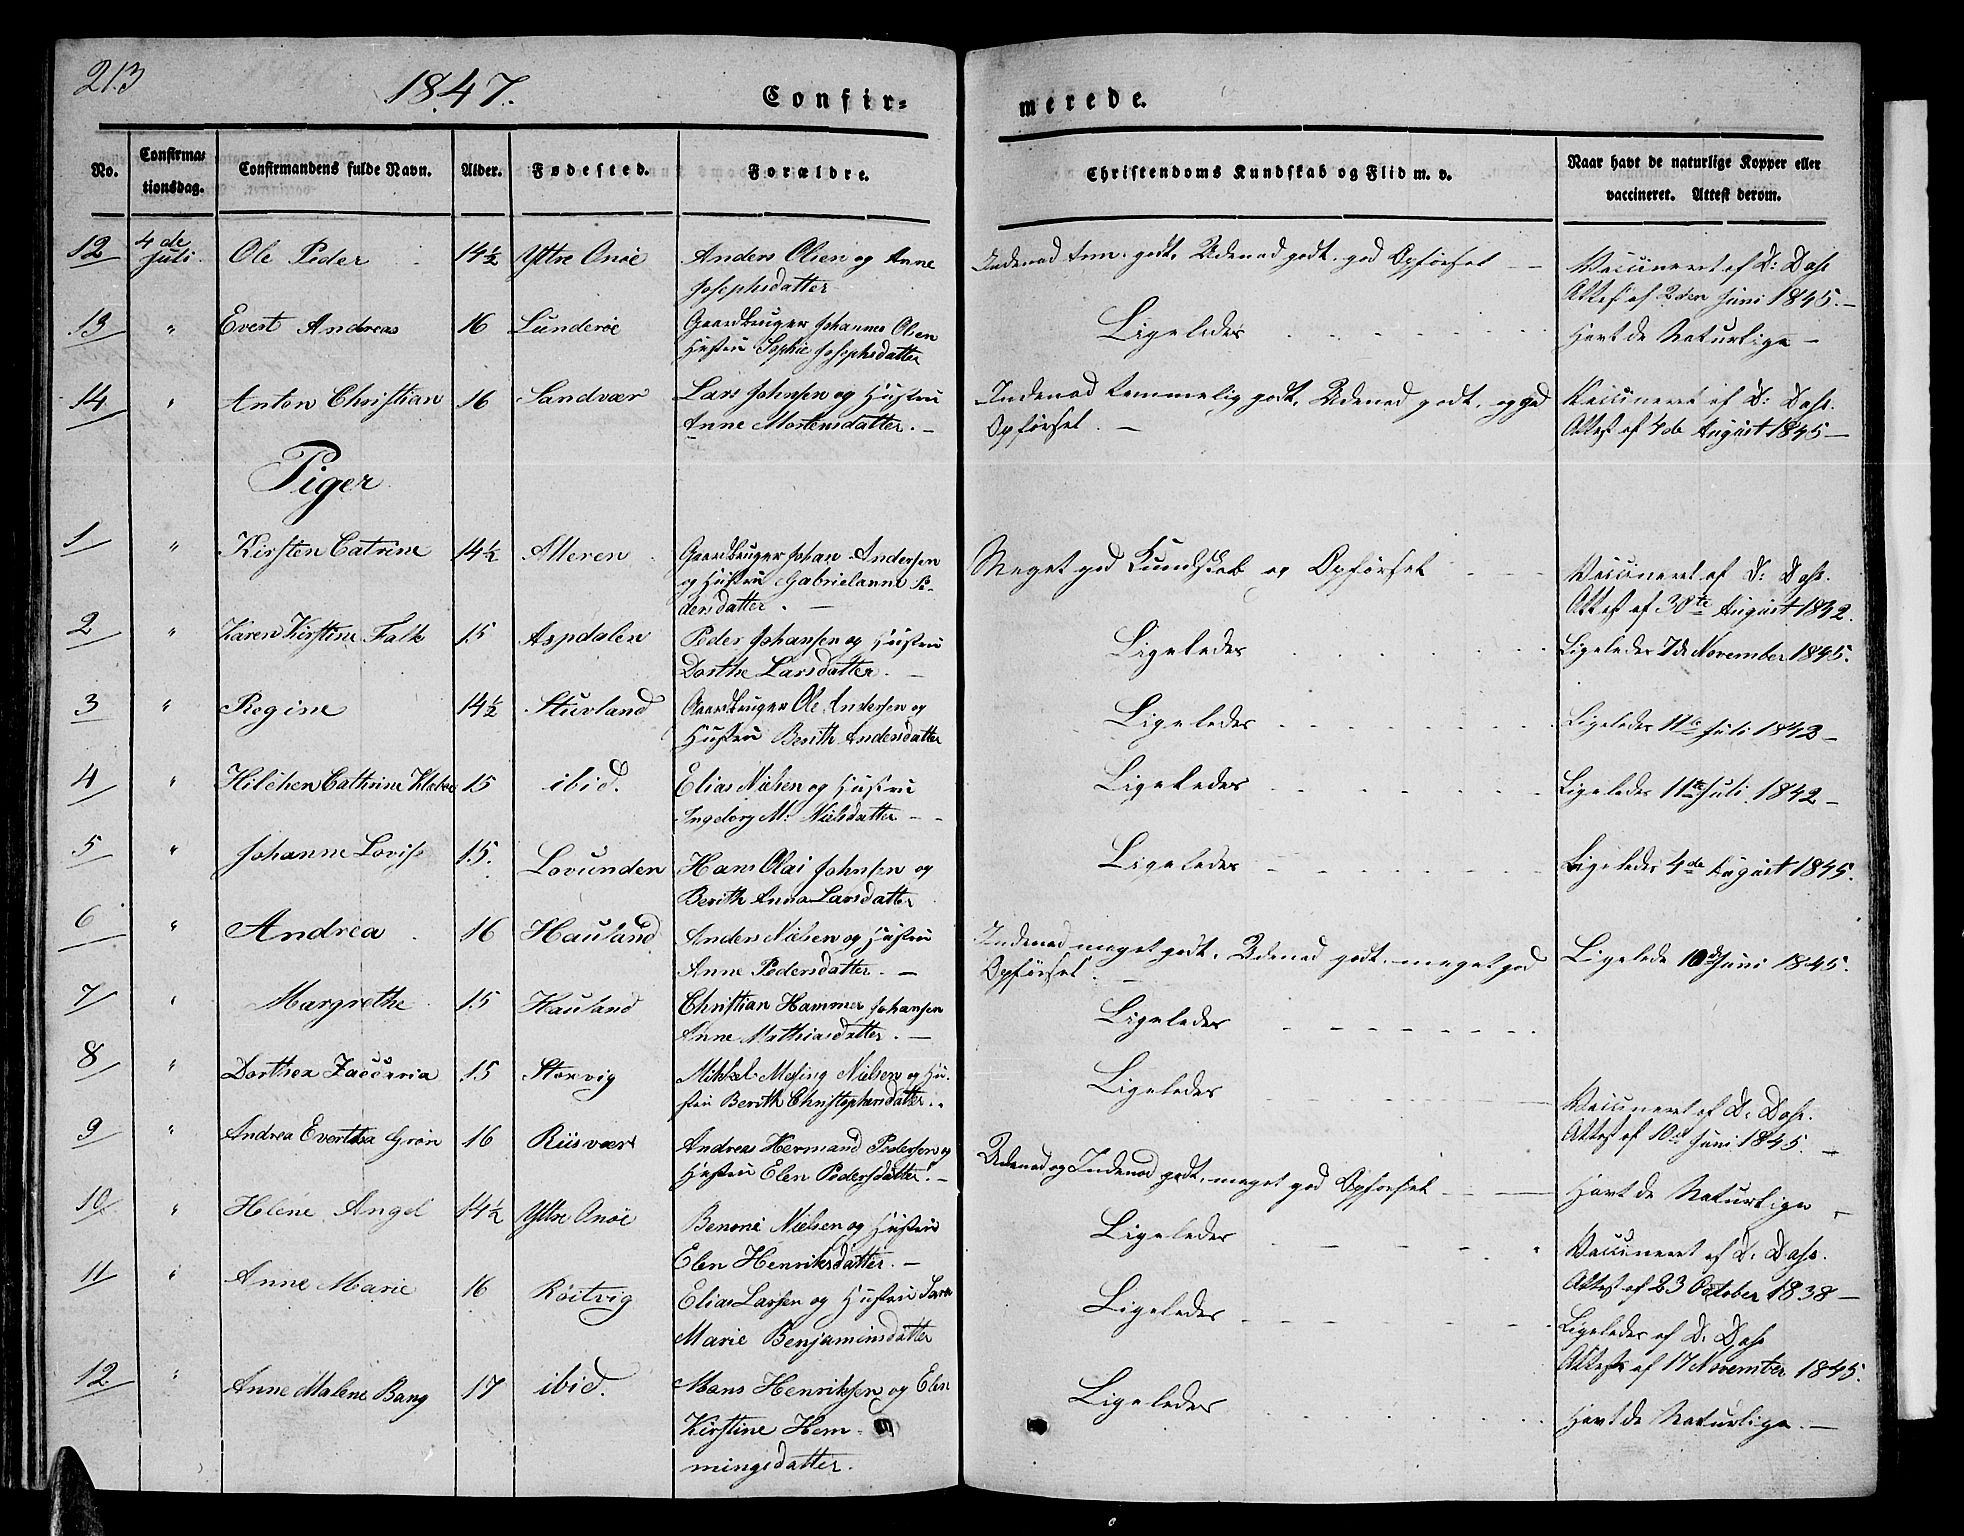 213
1847.
Confir-
merede.
No.
Confirma-
tionsdag.
Confirmandens fulde Navn.
Alder.
Fødested.
Forældre.
Christendoms Kundskab og Flid m. v.
Naar havt de naturlige Kopper eller
vaccineret. Attest derom.
12 4de Juli Ole Peder 14½ Yttre Onøe Anders Olsen og Anne
Josephsdatter
Indenad tem. godt, Udenad godt, god Opførsel — Vaccineret af D: Dass
Attest af 2den Juni 1845. —
13 " Evert Andreas 16 Lunderøe Gaardbruger Johannes Olsen
Hustru Sophie Josephsdatter
Ligeledes Havt de Naturlige —
14 " Anton Christian 16 Sandvær Lars Johnsen og Hustru
Anne Mortensdatter. —
Indenad temmelig godt, Udenad godt, og god
Opførsel. —
Vaccineret af D: Dass.
Attest af 4de August 1845 —
Piger
1 " Kirsten Catrine 14½ Alteren Gaardbruger Johan Andersen
og Hustru Gabrielanna Pe-
dersdatter. —
Meget god Kundskab og Opførsel Vaccineret af D: Dass.
Attest af 30te August 1842.
2 " Karen Kirstine Falk 15 Aspdalen Peder Johansen og Hustru
Dorthe Larsdatter. —
Ligeledes Ligeledes 7de November 1845.
3 " Regine 14½ Stuvland Gaardbruger Ole Andersen og
Hustru Berith Andersdatter
Ligeledes Ligeledes 11te Juli 1843 —
4 " Hilchen Cathrine Klæboe 15 ibid. Elias Nielsen og Hustru
Ingeborg M: Nielsdatter —
Ligeledes Ligeledes 11te Juli 1842 —
5 " Johanne Lovise 15. Lovunden Hans Olai Johnsen og
Berith Anna Larsdatter
Ligeledes Ligeledes 4de August 1845.
6 " Andrea 16 Hauland Anders Nielsen og Hustru
Anne Pedersdatter. —
Indenad meget godt, Udenad godt, meget god
Opførsel. —
Ligelede 10de Juni 1845.
7 " Margrethe 15 Hauland Christian Hammer Johansen
Anne Mathiasdatter. —
Ligeledes
8 " Dorthea Zaccaria 15 Storvig Mikkel Mesing Nielsen og Hu-
stru Berith Christophersdatter.
Ligeledes Vaccineret af D. Dass.
Attest af 10de Juni 1845. —
9 " Andrea Evertha Grøn 16 Riisvær Andreas Hermand Pedersen og
Hustru Elen Pedersdatter. —
Udenad og Indenad godt, meget god Opførsel — Havt de Naturlige —
10. " Helene Angel 14½ Yttre Onøe Benoni Nielsen og Hustru
Elen Henriksdatter. —
Ligeledes Vaccineret af D. Dass.
Attest af 23 October 1838 —
11 " Anne Marie 16 Røitvig Elias Larsen og Hustru Sara
Marie Benjaminsdatter
Ligeledes Ligeledes af D. Dass
Attest af 17 November 1845.
12. " Anne Malene Bang 17 ibid. Mons Henriksen og Elen
Kirstine Hem-
mingsdatter.
Ligeledes Havt de Naturlige. —